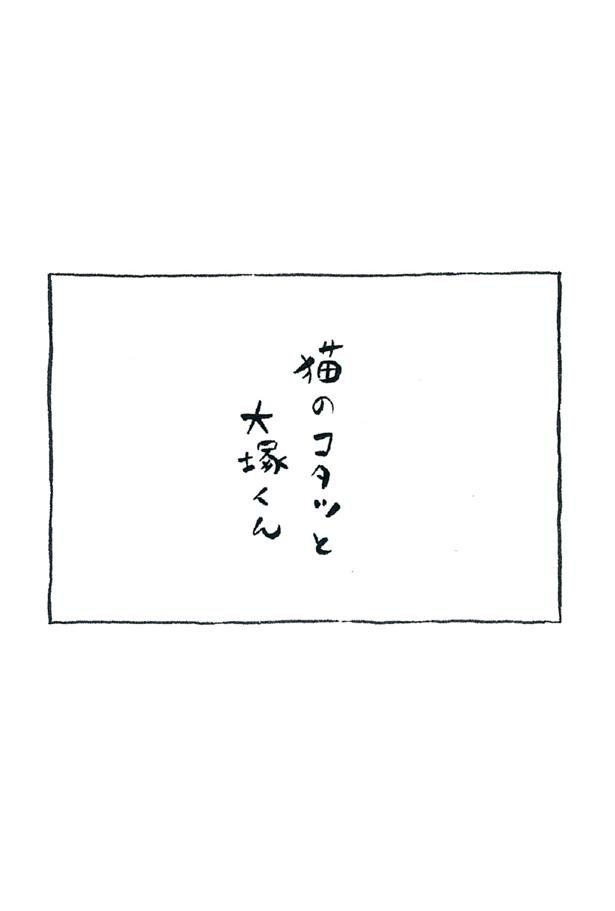 猫のコタツと
大塚くん